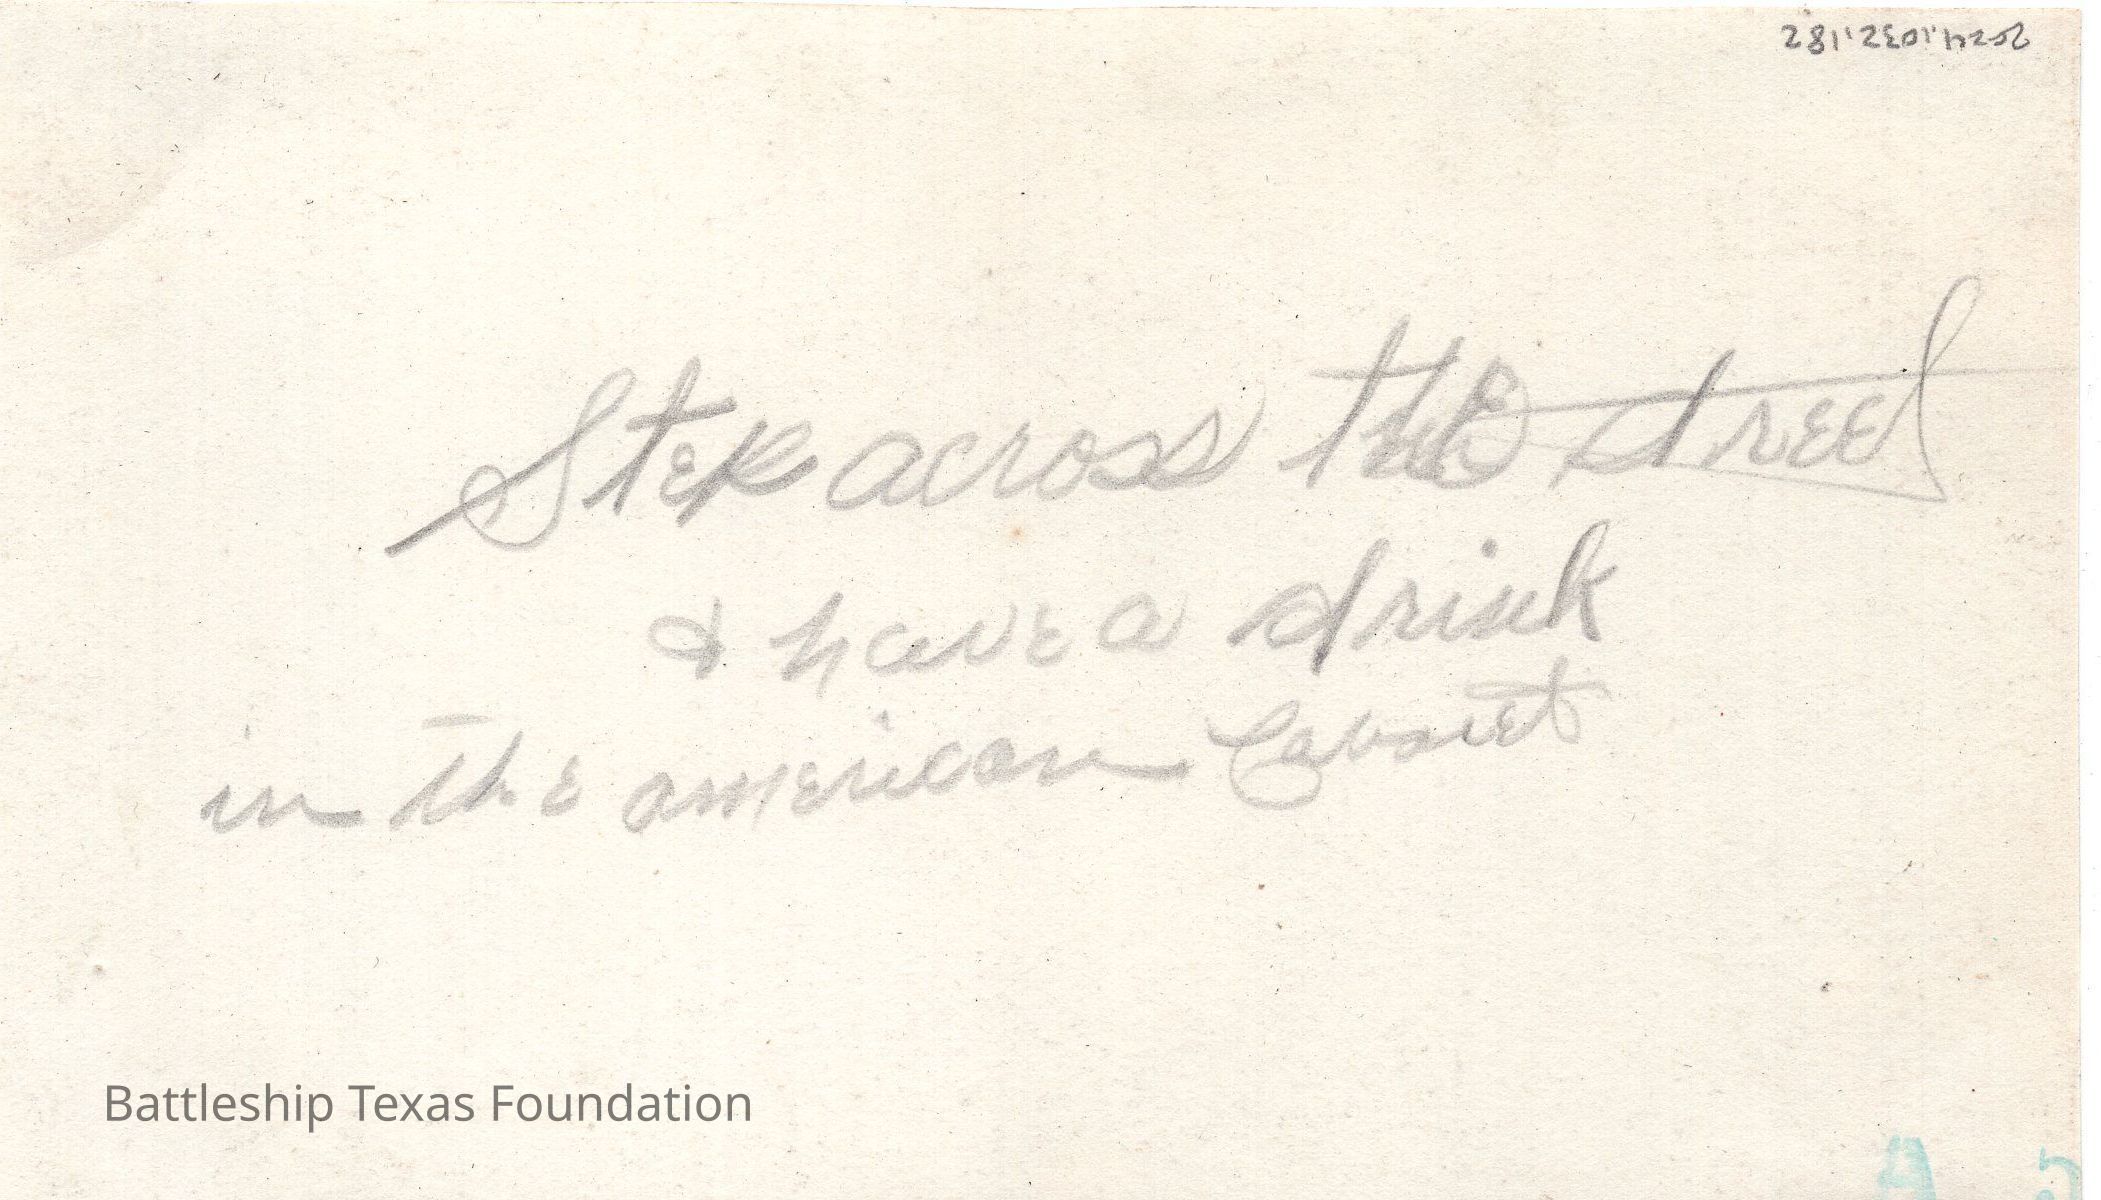 2024.1032.182
Step across the street
& have a drink
in the american Cabaret
Battleship Texas Foundation